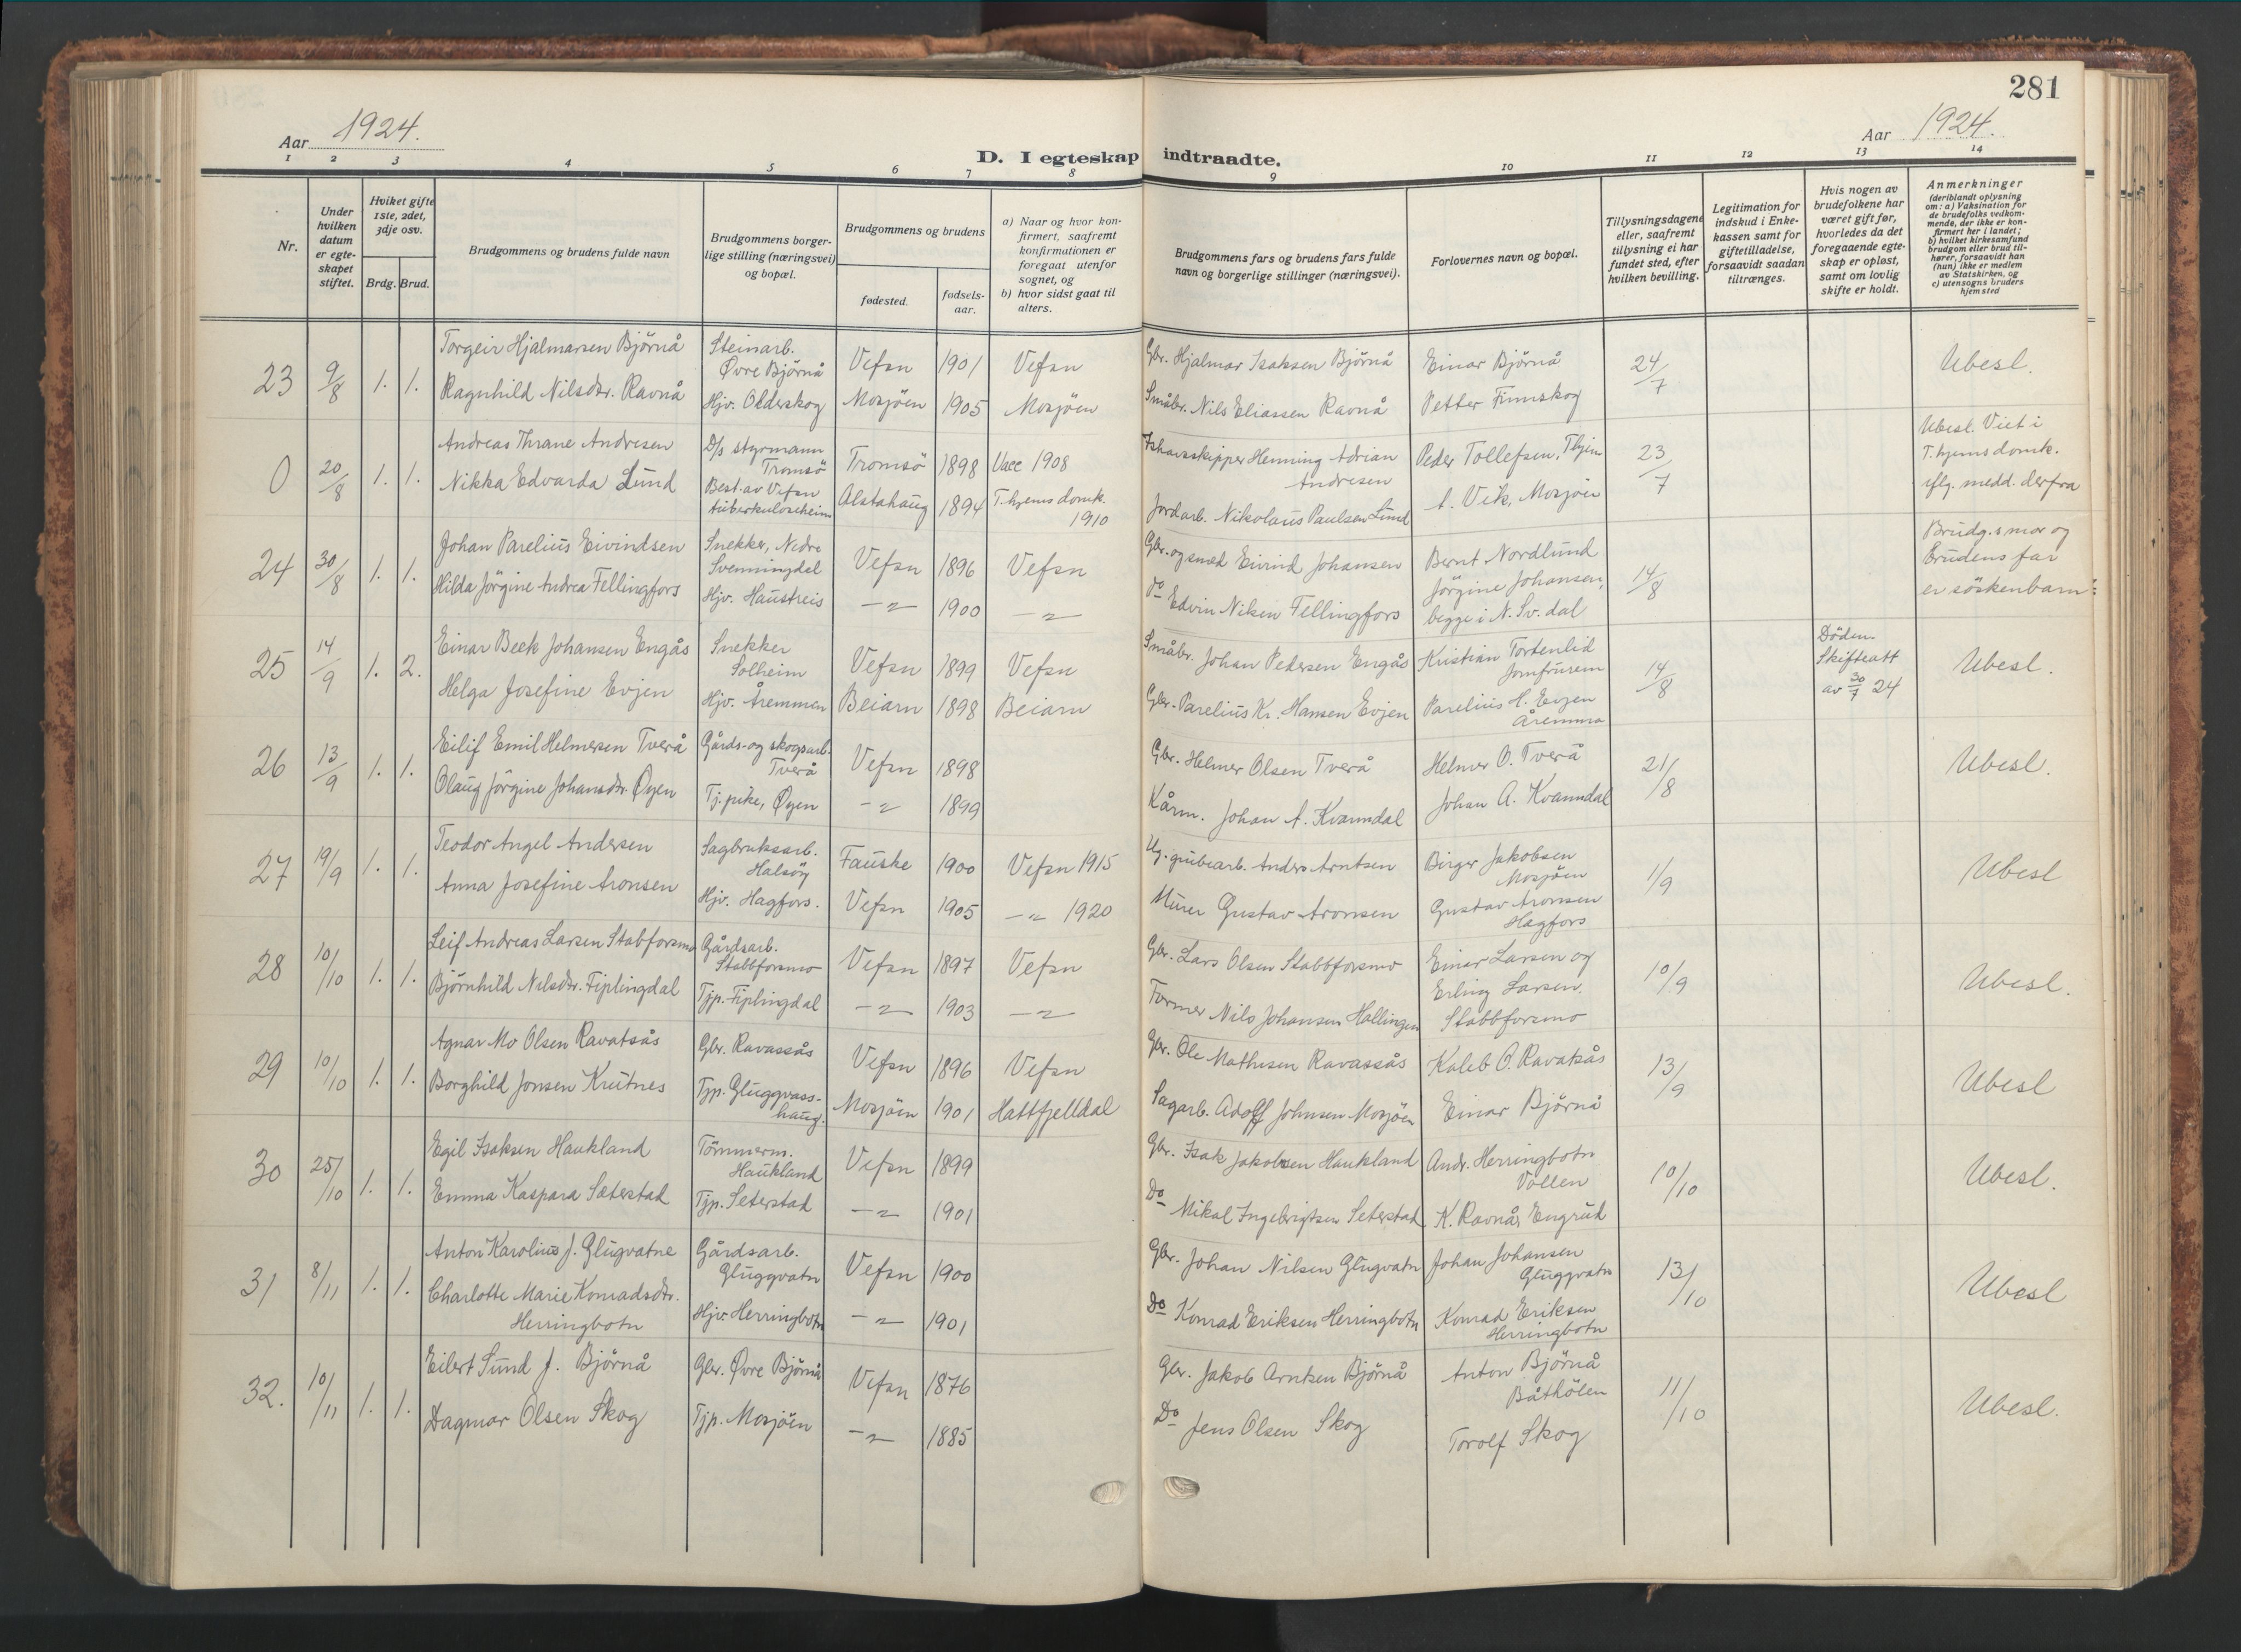 281
Aar 1924.
Aar 1924.
D. I egteskap indtraadte.
1 2 3 4 5 6 7 8 9 10 11 12 13 14
Nr.
Under hvilken datum er egteskapet stiftet.
Hvilket gifte 1ste, 2det, 3dje osv.
Brdg. Brud.
Brudgommens og brudens fulde navn
Brudgommens borgerlige stilling (næringsvei) og bopæl.
Brudgommens og brudens
fødested.
fødselsaar.
a) Naar og hvor konfirmert, saafremt konfirmationen er foregaat utenfor sognet, og
b) hvor sidst gaat til alters.
Brudgommens fars og brudens fars fulde navn og borgerlige stillinger (næringsvei).
Forlovernes navn og bopæl.
Tillysningsdagene eller, saafremt tillysning ei har fundet sted, efter hvilken bevilling.
Legitimation for indskud i Enkekassen samt for giftetilladelse, forsaavidt saadan tiltrænges.
Hvis nogen av brudefolkene har været gift før, hvorledes da det foregaaende egteskap er opløst, samt om lovlig skifte er holdt.
Anmerkninger (deriblandt oplysning om: a) Vaksination for de brudefolks vedkommende, der ikke er konfirmert her i landet; b) hvilket kirkesamfund brudgom eller brud tilhører, forsaavidt han (hun) ikke er medlem av Statskirken, og c) utensogns bruders hjemsted
23 9/8 1. 1. Torgeir Hjalmarsen Björnå Steinarb. Øvre Björnå Vefsn 1901 Vefsn Gbr. Hjalmar Isaksen Björnå Einar Björnå 24/7 Ubesl.
Ragnhild Nilsdtr. Ravnå Hjv. Olderskog Mosjöen 1905 Mosjöen Småbr. Nils Eliassen Ravnå Petter Finnskog
0 20/8 1. 1. Andreas Thrane Andresen D/s styrmann Tromsö Tromsö 1898 Vacc 1908 Ishavsskipper Henning Adrian Andresen Peder Tollefsen, Thjem 23/7 Ubesl. Viet i T.hjems domk. iflg. medd. derfra
Nikka Edvarda Lund Best. av Vefsn tuberkuloseheim Alstahaug 1894 T.hjems domk. 1910 Jordarb. Nikolaus Paulsen Lund A. Vik, Mosjöen
24 30/8 1. 1. Johan Parelius Eivindsen Snekker, Nedre Svenningdal Vefsn 1896 Vefsn Gbr. og smed Eivind Johansen Bernt Nordlund 14/8 Brudg.s mor og brudens far er söskenbarn
Hilda Jörgine Andrea Fellingfors Hjv. Haustreis -"- 1900 -"- do Edvin Niken Fellingfors Jörgine Johansen, begge i N. Sv. dal
25 14/9 1. 2. Einar Beck Johansen Engås Snekker Solheim Vefsn 1899 Vefsn Småbr. Johan Pedersen Engås Kristian Tortenlid Jomfrurem 14/8 Döden. Skifteatt av 30/7 24 Ubesl.
Helga Josefine Evjen Hjv. Åremmen Beiarn 1898 Beiarn Gbr. Parelius Kr. Hansen Evjen Parelius H. Evjen Åremma
26 13/9 1. 1. Eilif Emil Helmersen Tverå Gårds- og skogsarb. Tverå Vefsn 1898 Gbr. Helmer Olsen Tverå Helmer O. Tverå 21/8 Ubesl.
Olaug Jörgine Johansdtr. Øyen Tj.pike, Øyen -"- 1899 Kårm. Johan A. Kvanndal Johan A. Kvanndal
27 19/9 1. 1. Teodor Angel Andersen Sagbruksarb. Halsöy Fauske 1900 Vefsn 1915 Ug. grubearb. Anders Arntsen Birger Jakobsen Mosjöen 1/9 Ubesl
Anna Josefine Aronsen Hjv. Hagfors. Vefsn 1905 -"- 1920 Murer Gustav Aronsen Gustav Aronsen Hagfors
28 10/10 1. 1. Leif Andreas Larsen Stabforsmo Gårdsarb. Stabbforsmo Vefsn 1897 Vefsn Gbr. Lars Olsen Stabbforsmo Einar Larsen og 10/9 Ubesl.
Björnhild Nilsdtr. Fiplingdal Tjp. Fiplingdal -"- 1903 -"- Former Nils Johansen Hallingen Erling Larsen. Stabbforsmo
29 10/10 1. 1. Agnar Mo Olsen Ravatsås Gbr. Ravassås Vefsn 1896 Vefsn Gbr. Ole Mathisen Ravassås Kaleb O. Ravatsås 13/9 Ubesl
Borghild Jonsen Krutnes Tjp. Gluggvasshaug. Mosjöen 1901 Hattfjelldal Sagarb. Adolf Johnsen Mosjöen Einar Björnå
30 25/10 1. 1. Egil Isaksen Haukland Tömmerm. Haukland Vefsn 1899 Gbr. Isak Jakobsen Haukland Andr. Herringbotn Vollen 10/10 Ubesl.
Emma Kaspara Sæterstad Tjp. Seterstad -"- 1901 Do Mikal Ingebrigtsen Seterstad K. Ravnå, Engrud
31 8/11 1. 1. Anton Karolius J. Glugvatne Gårdsarb. Gluggvatn Vefsn 1900 Gbr. Johan Nilsen Glugvatn Johan Johansen Gluggvatn 13/10 Ubesl
Charlotte Marie Konradsdtr. Herringbotn Hjv. Herringbotn -"- 1901 Do Konrad Eriksen Herringbotn Konrad Eriksen Herringbotn
32. 10/11 1. 1. Eilert Sund J. Björnå Gbr. Øvre Björnå Vefsn 1876 Gbr. Jakob Arntsen Björnå Anton Björnå Båthölen 11/10 Ubesl.
Dagmar Olsen Skog Tjp. Mosjöen -"- 1885 Do Jens Olsen Skog Torolf Skog